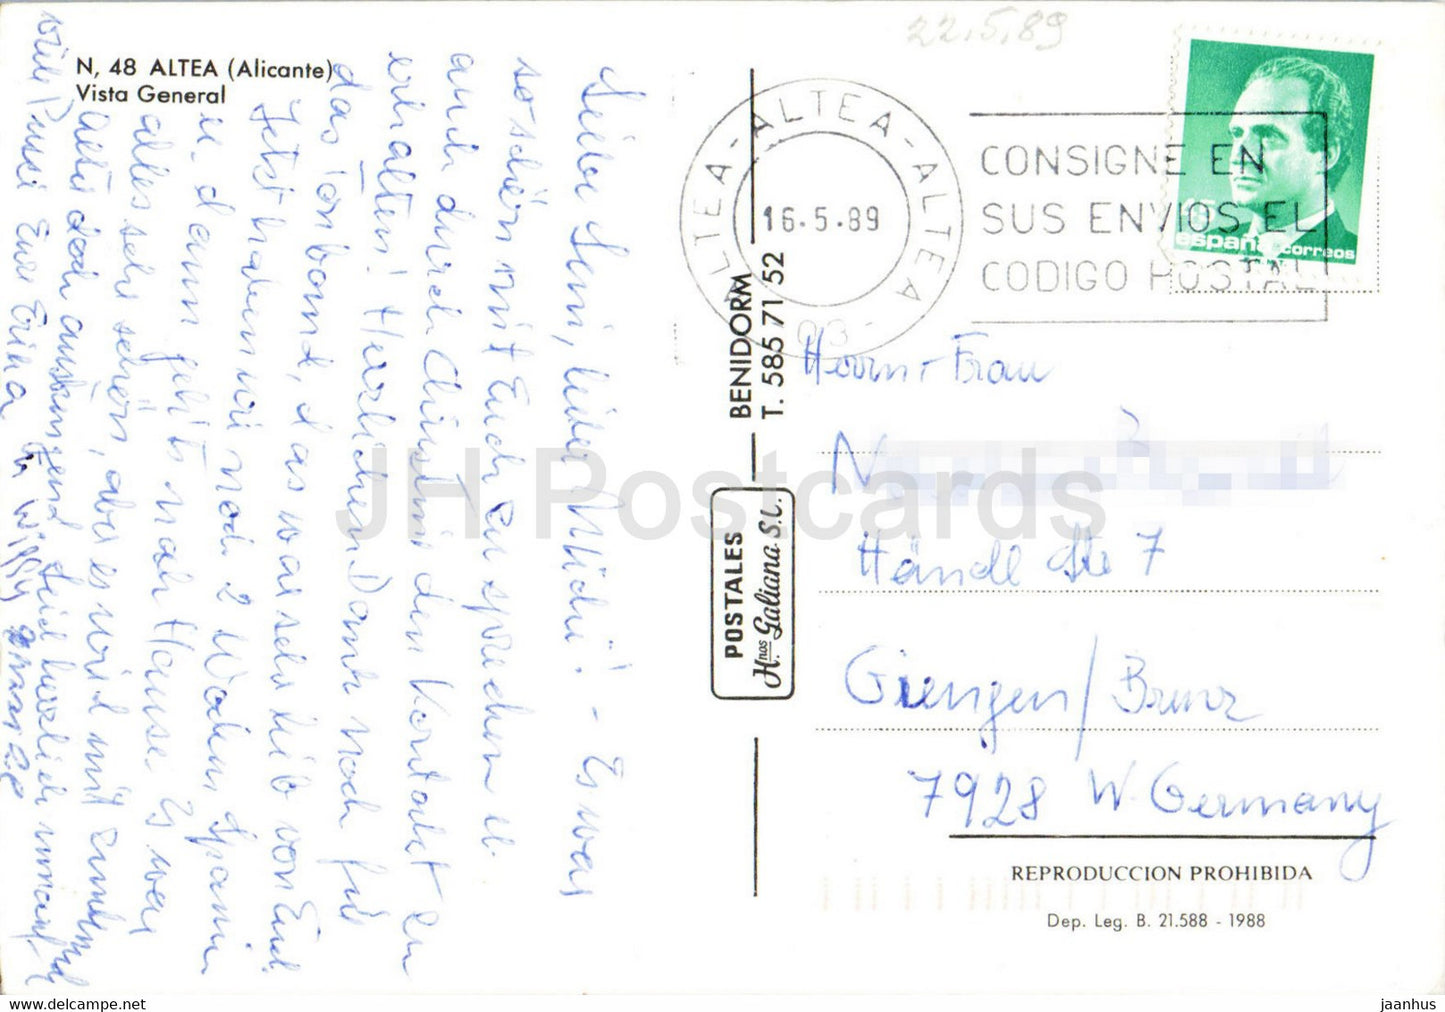 N, 48 ALTEA (Alicante)
Vista General
22.5.89
ALTEA - ALTEA - ALTEA
16-5-89
03
CONSIGNE EN
SUS ENVIOS EL
CODIGO POSTAL
15
españa correos
Liebe Leni, lieber Michi! - Es war
so schön mit Euch zu sprechen u.
auch durch Christmi den Kontakt zu
erhalten! Herzlichen Dank noch für
das Tonband, das war sehr lieb von Euch.
Jetzt haben wir noch 2 Wochen Spanien
u. dann geht's nach Hause. Es war
alles sehr schön, aber es wird mit zunehmend
Alter doch anstrengend. Seid herzlich umarmt
viele Bussi Eure Erika u. Willy
BENIDORM
T. 585 71 52
POSTALES
Hnos Galiana S.L.
Herrn + Frau
Händl Str 7
Giengen/Brenz
7928 W. Germany
REPRODUCCION PROHIBIDA
Dep. Leg. B. 21.588 - 1988
JH Postcards
www.hippostcard.com
jaanhus